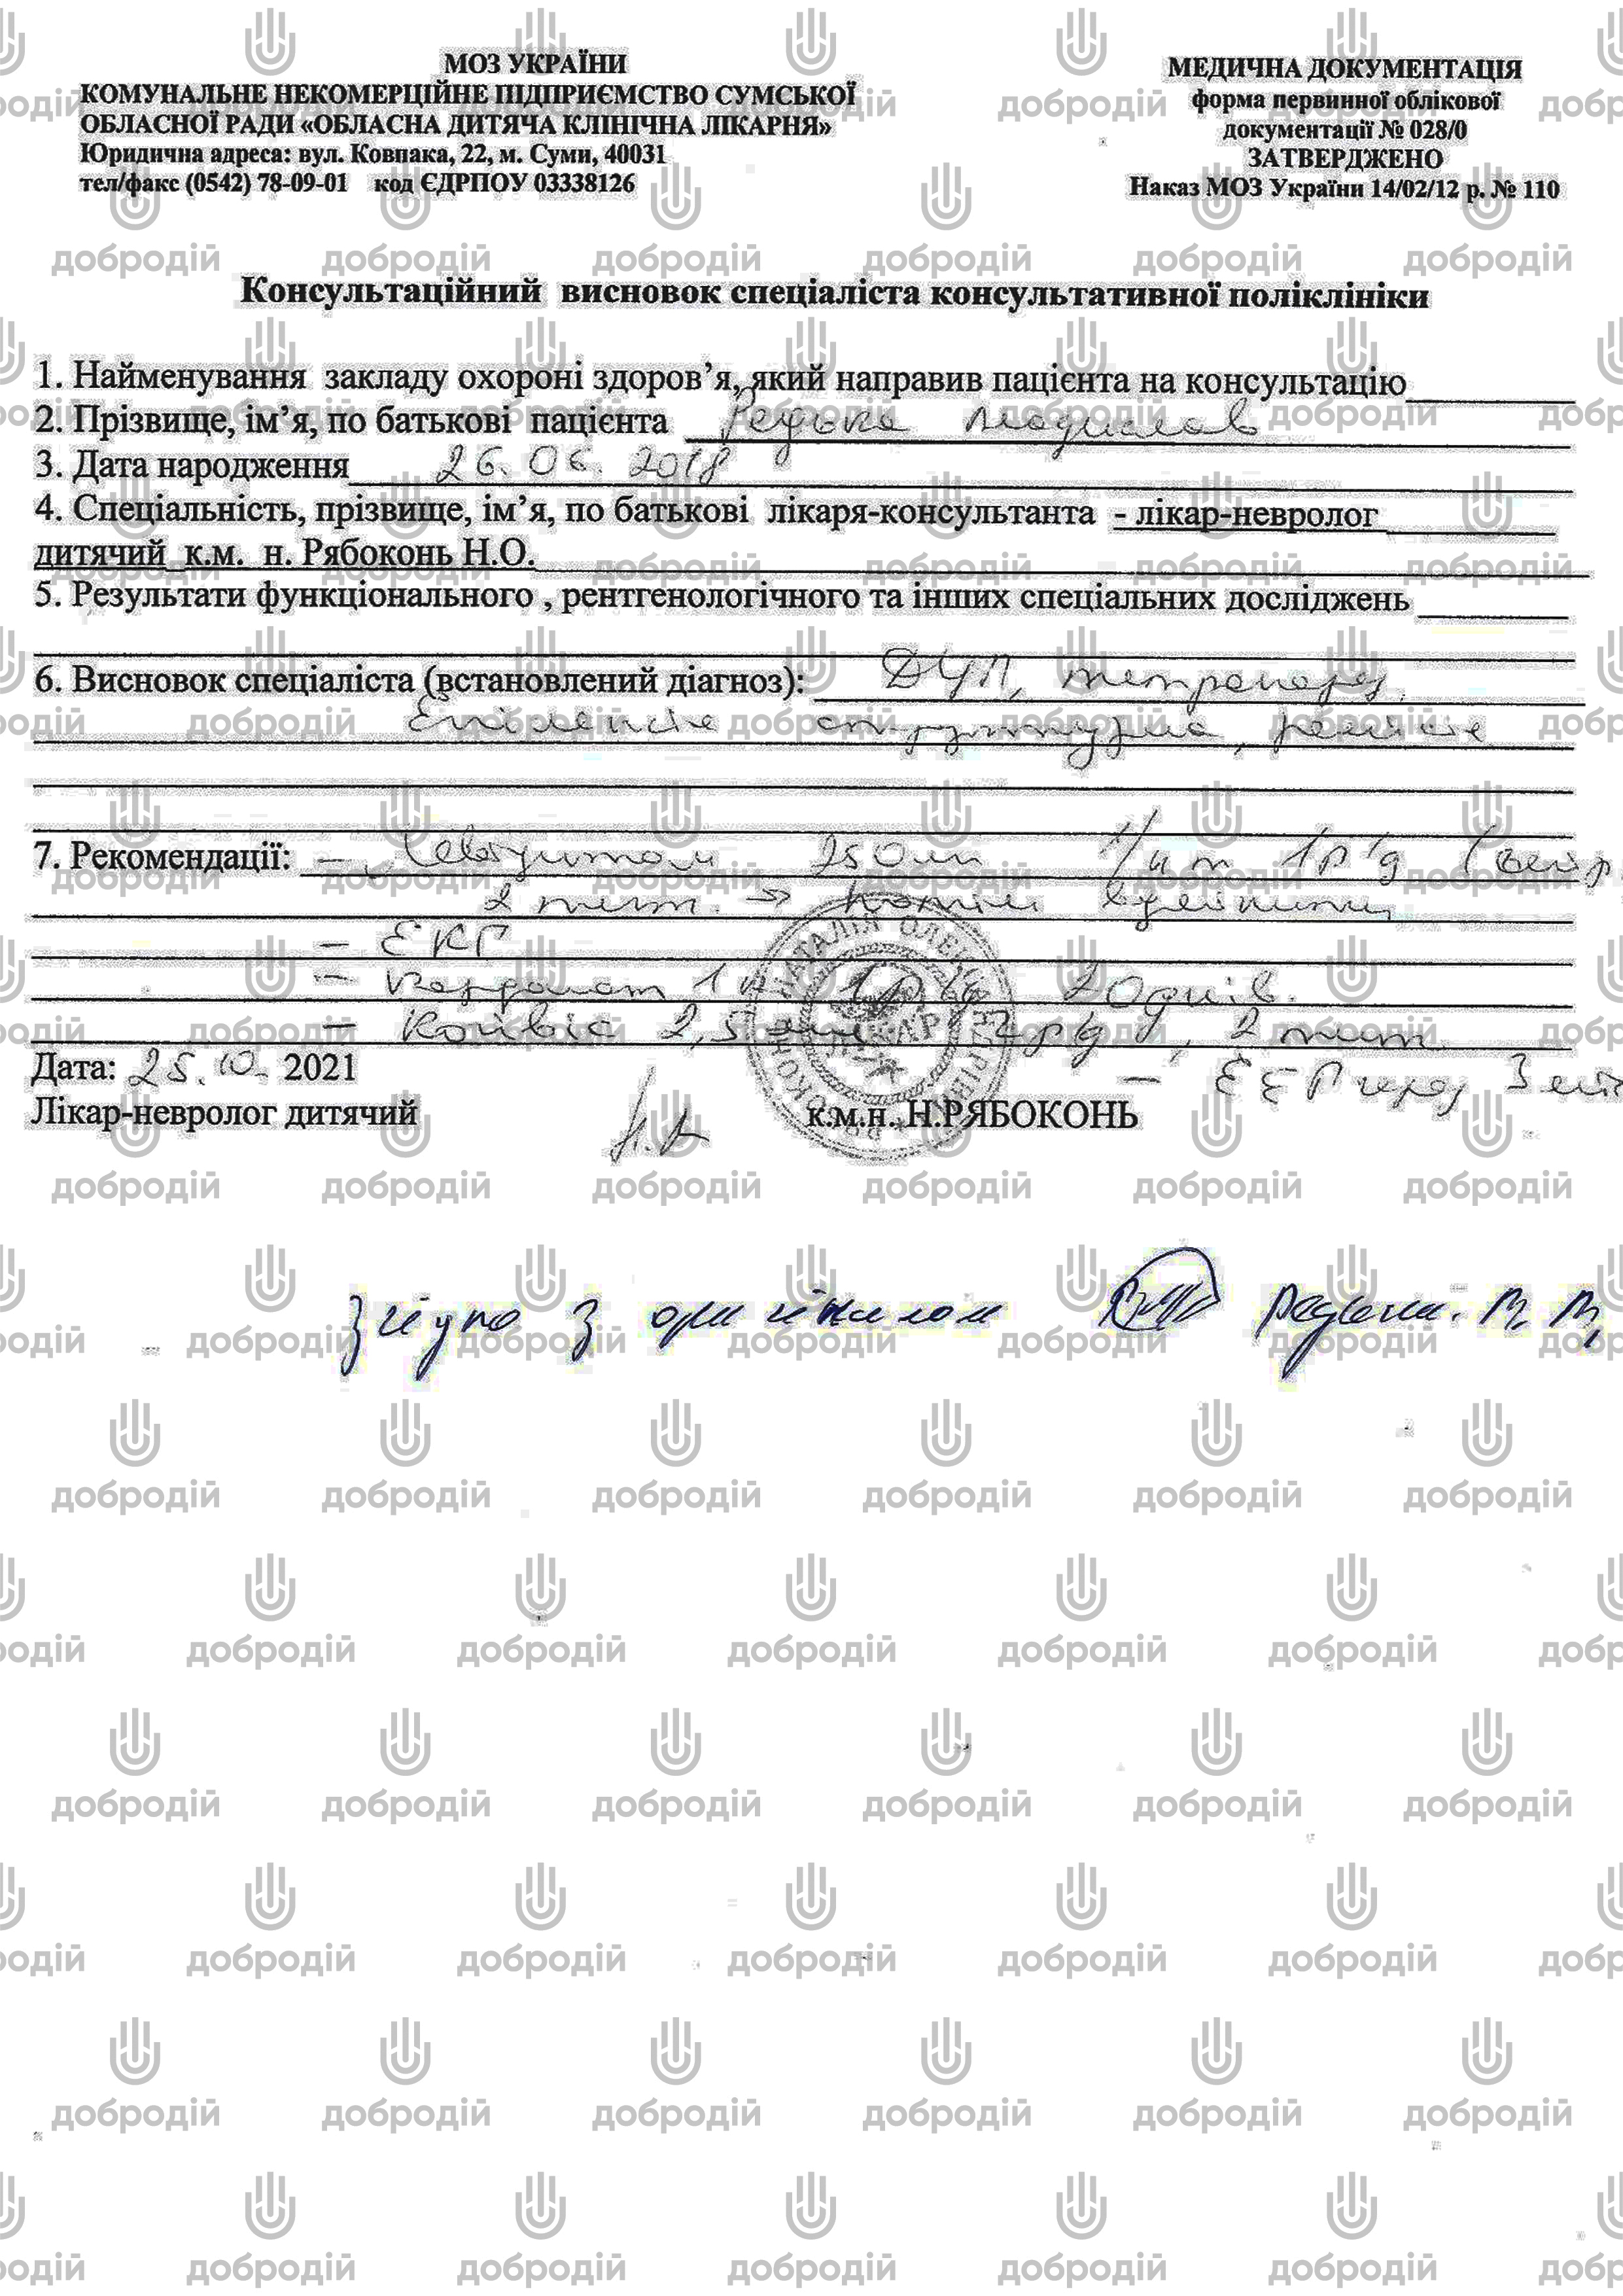 МОЗ УКРАЇНИ
КОМУНАЛЬНЕ НЕКОМЕРЦІЙНЕ ПІДПРИЄМСТВО СУМСЬКОЇ
ОБЛАСНОЇ РАДИ «ОБЛАСНА ДИТЯЧА КЛІНІЧНА ЛІКАРНЯ»
Юридична адреса: вул. Ковпака, 22, м. Суми, 40031
тел/факс (0542) 78-09-01 код ЄДРПОУ 03338126
МЕДИЧНА ДОКУМЕНТАЦІЯ
форма первинної облікової
документації № 028/0
ЗАТВЕРДЖЕНО
Наказ МОЗ України 14/02/12 р. № 110
Консультаційний висновок спеціаліста консультативної поліклініки
1. Найменування закладу охороні здоров’я, який направив пацієнта на консультацію
2. Прізвище, ім’я, по батькові пацієнта Редько Владислав
3. Дата народження 26.06.2018
4. Спеціальність, прізвище, ім’я, по батькові лікаря-консультанта - лікар-невролог
дитячий к.м. н. Рябоконь Н.О.
5. Результати функціонального , рентгенологічного та інших спеціальних досліджень
6. Висновок спеціаліста (встановлений діагноз): ДЦП, тетрапарез,
Епілепсія структурна, ремісія
7. Рекомендації: - 250 мг 1р/д
2 тиж. → потім відмінити
- ЕКГ
- 1р/д 20 днів.
- 2,5 мл 2р/д, 2 тиж.
Дата: 25.10. 2021
- ЕЕГ через 3 міс
Лікар-невролог дитячий к.м.н. Н.РЯБОКОНЬ
Згідно з оригіналом
добродій